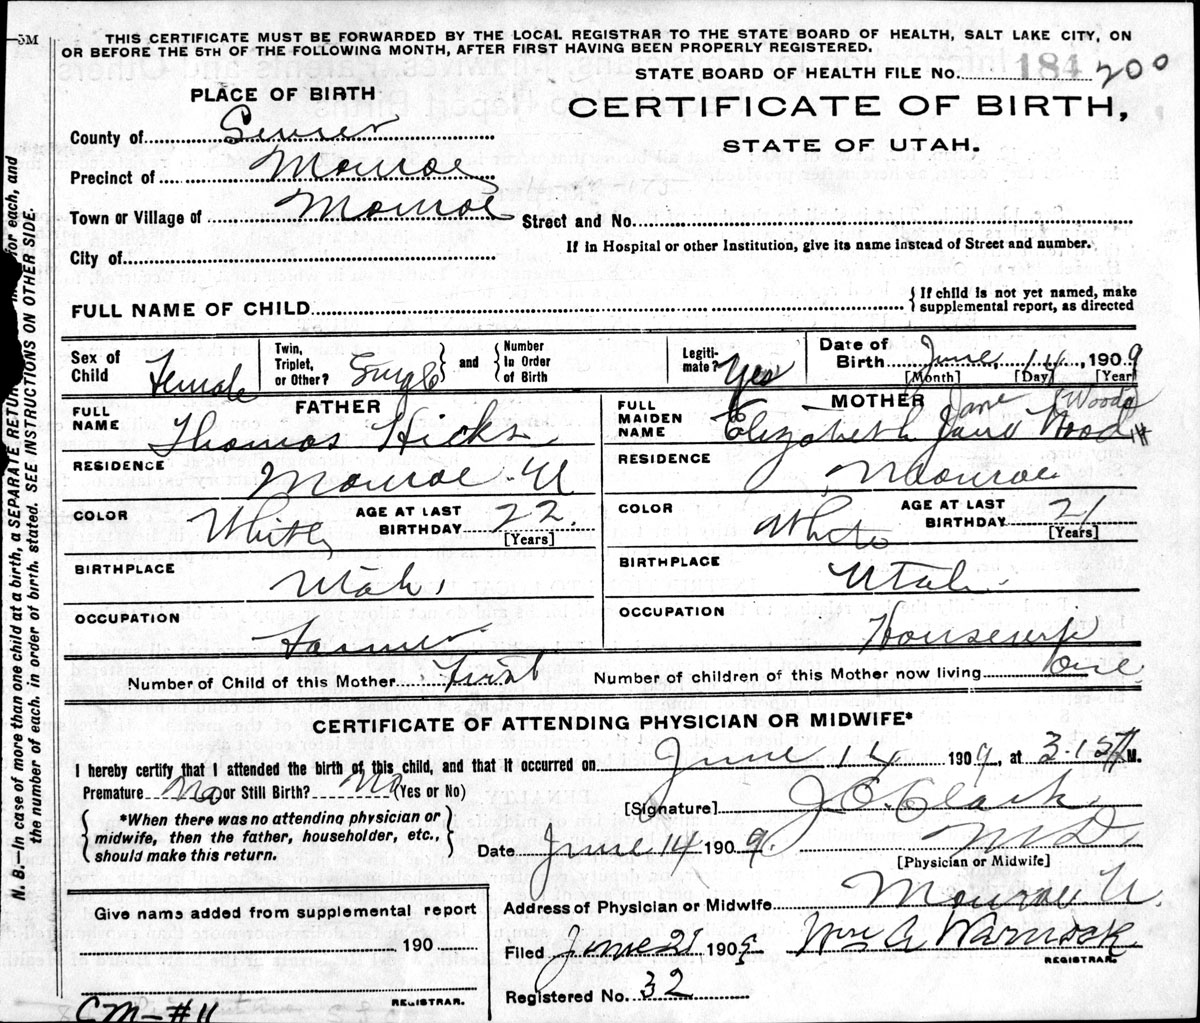 5M
THIS CERTIFICATE MUST BE FORWARDED BY THE LOCAL REGISTRAR TO THE STATE BOARD OF HEALTH, SALT LAKE CITY, ON
OR BEFORE THE 5TH OF THE FOLLOWING MONTH, AFTER FIRST HAVING BEEN PROPERLY REGISTERED.
STATE BOARD OF HEALTH FILE No. 184 200
PLACE OF BIRTH
CERTIFICATE OF BIRTH,
STATE OF UTAH.
County of Sevier
Precinct of Monroe
Town or Village of Monroe Street and No.
City of If in Hospital or other Institution, give its name instead of Street and number.
FULL NAME OF CHILD { If child is not yet named, make
supplemental report, as directed
Sex of Child Female
Twin, Triplet, or Other? Single } and { Number In Order of Birth
Legitimate? Yes
Date of Birth June 14, 1909
[Month] [Day] [Year]
FATHER
FULL NAME Thomas Hicks
RESIDENCE Monroe U
COLOR White AGE AT LAST BIRTHDAY 22. [Years]
BIRTHPLACE Utah.
OCCUPATION Farmer
MOTHER Jane (Woods)
FULL MAIDEN NAME Elizabeth Jane Wood
RESIDENCE Monroe
COLOR White AGE AT LAST BIRTHDAY 21 [Years]
BIRTHPLACE Utah.
OCCUPATION Housewife
Number of Child of this Mother First Number of children of this Mother now living one
CERTIFICATE OF ATTENDING PHYSICIAN OR MIDWIFE*
I hereby certify that I attended the birth of this child, and that it occurred on June 14 1909, at 3-15 M.
Premature No or Still Birth? No (Yes or No)
{ *When there was no attending physician or
midwife, then the father, householder, etc.,
should make this return. }
[Signature] J. E. Clark
Date June 14 1909. M D.
[Physician or Midwife]
Address of Physician or Midwife Monroe U.
Filed June 21 1909 Wm A Warnock
REGISTRAR.
Registered No. 32
Give name added from supplemental report
190
REGISTRAR.
CM-#11
N. B.—In case of more than one child at a birth, a SEPARATE RETURN for each, and
the number of each, in order of birth, stated. SEE INSTRUCTIONS ON OTHER SIDE.